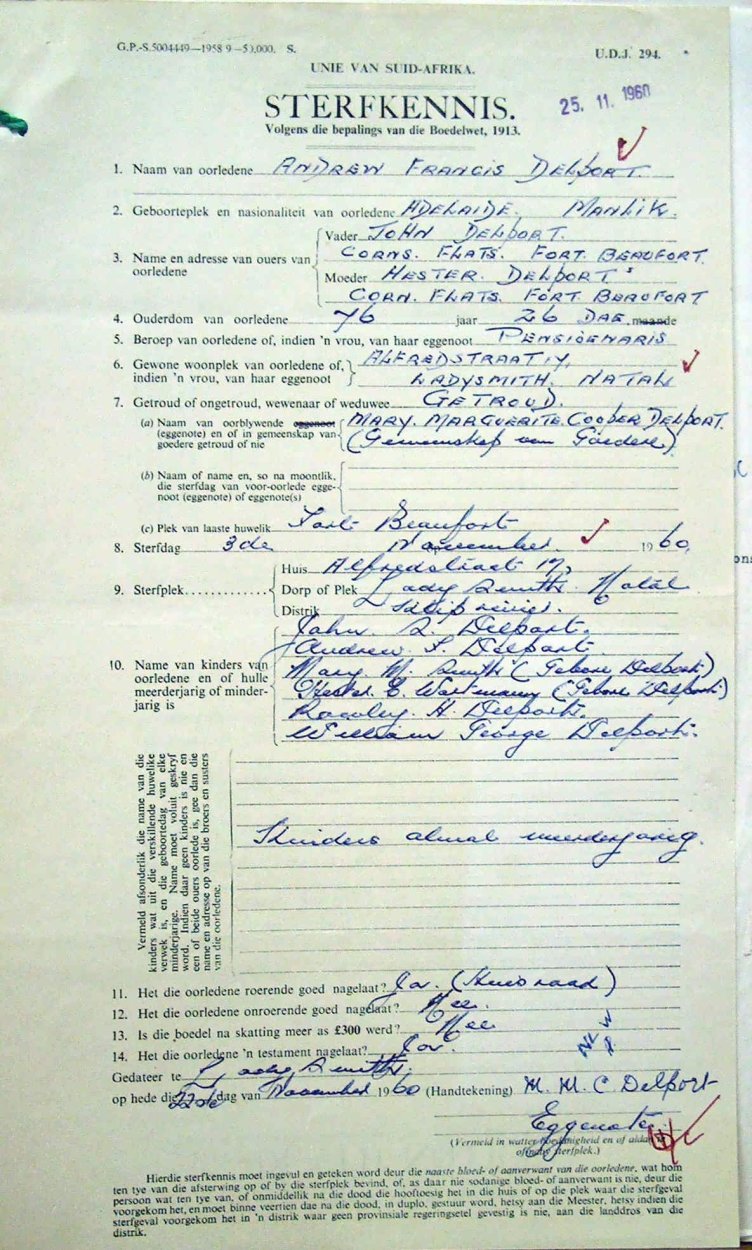 G.P.-S.5004449—1958 9—50,000. S. U.D.J. 294.
UNIE VAN SUID-AFRIKA.
STERFKENNIS. 25. 11. 1960
Volgens die bepalings van die Boedelwet, 1913.
1. Naam van oorledene ANDREW FRANCIS DELPORT
2. Geboorteplek en nasionaliteit van oorledene ADELAIDE. MANLIK.
3. Name en adresse van ouers van oorledene
Vader JOHN DELPORT.
CORNS. FLATS. FORT BEAUFORT.
Moeder HESTER. DELPORT
CORN. FLATS. FORT BEAUFORT
4. Ouderdom van oorledene 76 jaar 26 DAE maande
5. Beroep van oorledene of, indien 'n vrou, van haar eggenoot PENSIOENARIS
6. Gewone woonplek van oorledene of, indien 'n vrou, van haar eggenoot
ALFREDSTRAAT 17,
LADYSMITH. NATAL
7. Getroud of ongetroud, wewenaar of weduwee GETROUD.
(a) Naam van oorblywende eggenoot (eggenote) en of in gemeenskap van goedere getroud of nie
MARY. MARGUERITE. COOPER DELPORT.
(Gemeenskap van Goedere)
(b) Naam of name en, so na moontlik, die sterfdag van voor-oorlede eggenoot (eggenote) of eggenote(s)
(c) Plek van laaste huwelik Fort Beaufort
8. Sterfdag 3de November 1960
9. Sterfplek............
Huis Alfredstraat 17,
Dorp of Plek Ladysmith Natal
Distrik Kliprivier.
10. Name van kinders van oorledene en of hulle meerderjarig of minderjarig is
John. Delport.
Andrew F. Delport.
Mary. M. Smith (Gebore Delport)
Hester. E. (Gebore Delport)
Rowley. H. Delport.
William George Delport.
Vermeld afsonderlik die name van die kinders wat uit die verskillende huwelike verwek is, en die geboortedag van elke minderjarige. Name moet voluit geskryf word. Indien daar geen kinders is nie en een of beide ouers oorlede is, gee dan die name en adresse op van die broers en susters van die oorledene.
Kinders almal meerderjarig.
11. Het die oorledene roerende goed nagelaat? Ja. (Huisraad)
12. Het die oorledene onroerende goed nagelaat? Nee.
13. Is die boedel na skatting meer as £300 werd? Nee
14. Het die oorledene 'n testament nagelaat? Ja.
Gedateer te Ladysmith.
op hede die 22de dag van November 1960 (Handtekening) M. M. C Delport
Eggenote
(Vermeld in watter hoedanigheid en of aldan nie op die sterfplek.)
Hierdie sterfkennis moet ingevul en geteken word deur die naaste bloed- of aanverwant van die oorledene, wat hom
ten tye van die afsterwing op of by die sterfplek bevind, of, as daar nie sodanige bloed- of aanverwant is nie, deur die
persoon wat ten tye van, of onmiddellik na die dood die hooftoesig het in die huis of op die plek waar die sterfgeval
voorgekom het, en moet binne veertien dae na die dood, in duplo, gestuur word, hetsy aan die Meester, hetsy indien die
sterfgeval voorgekom het in 'n distrik waar geen provinsiale regeringsetel gevestig is nie, aan die landdros van die
distrik.